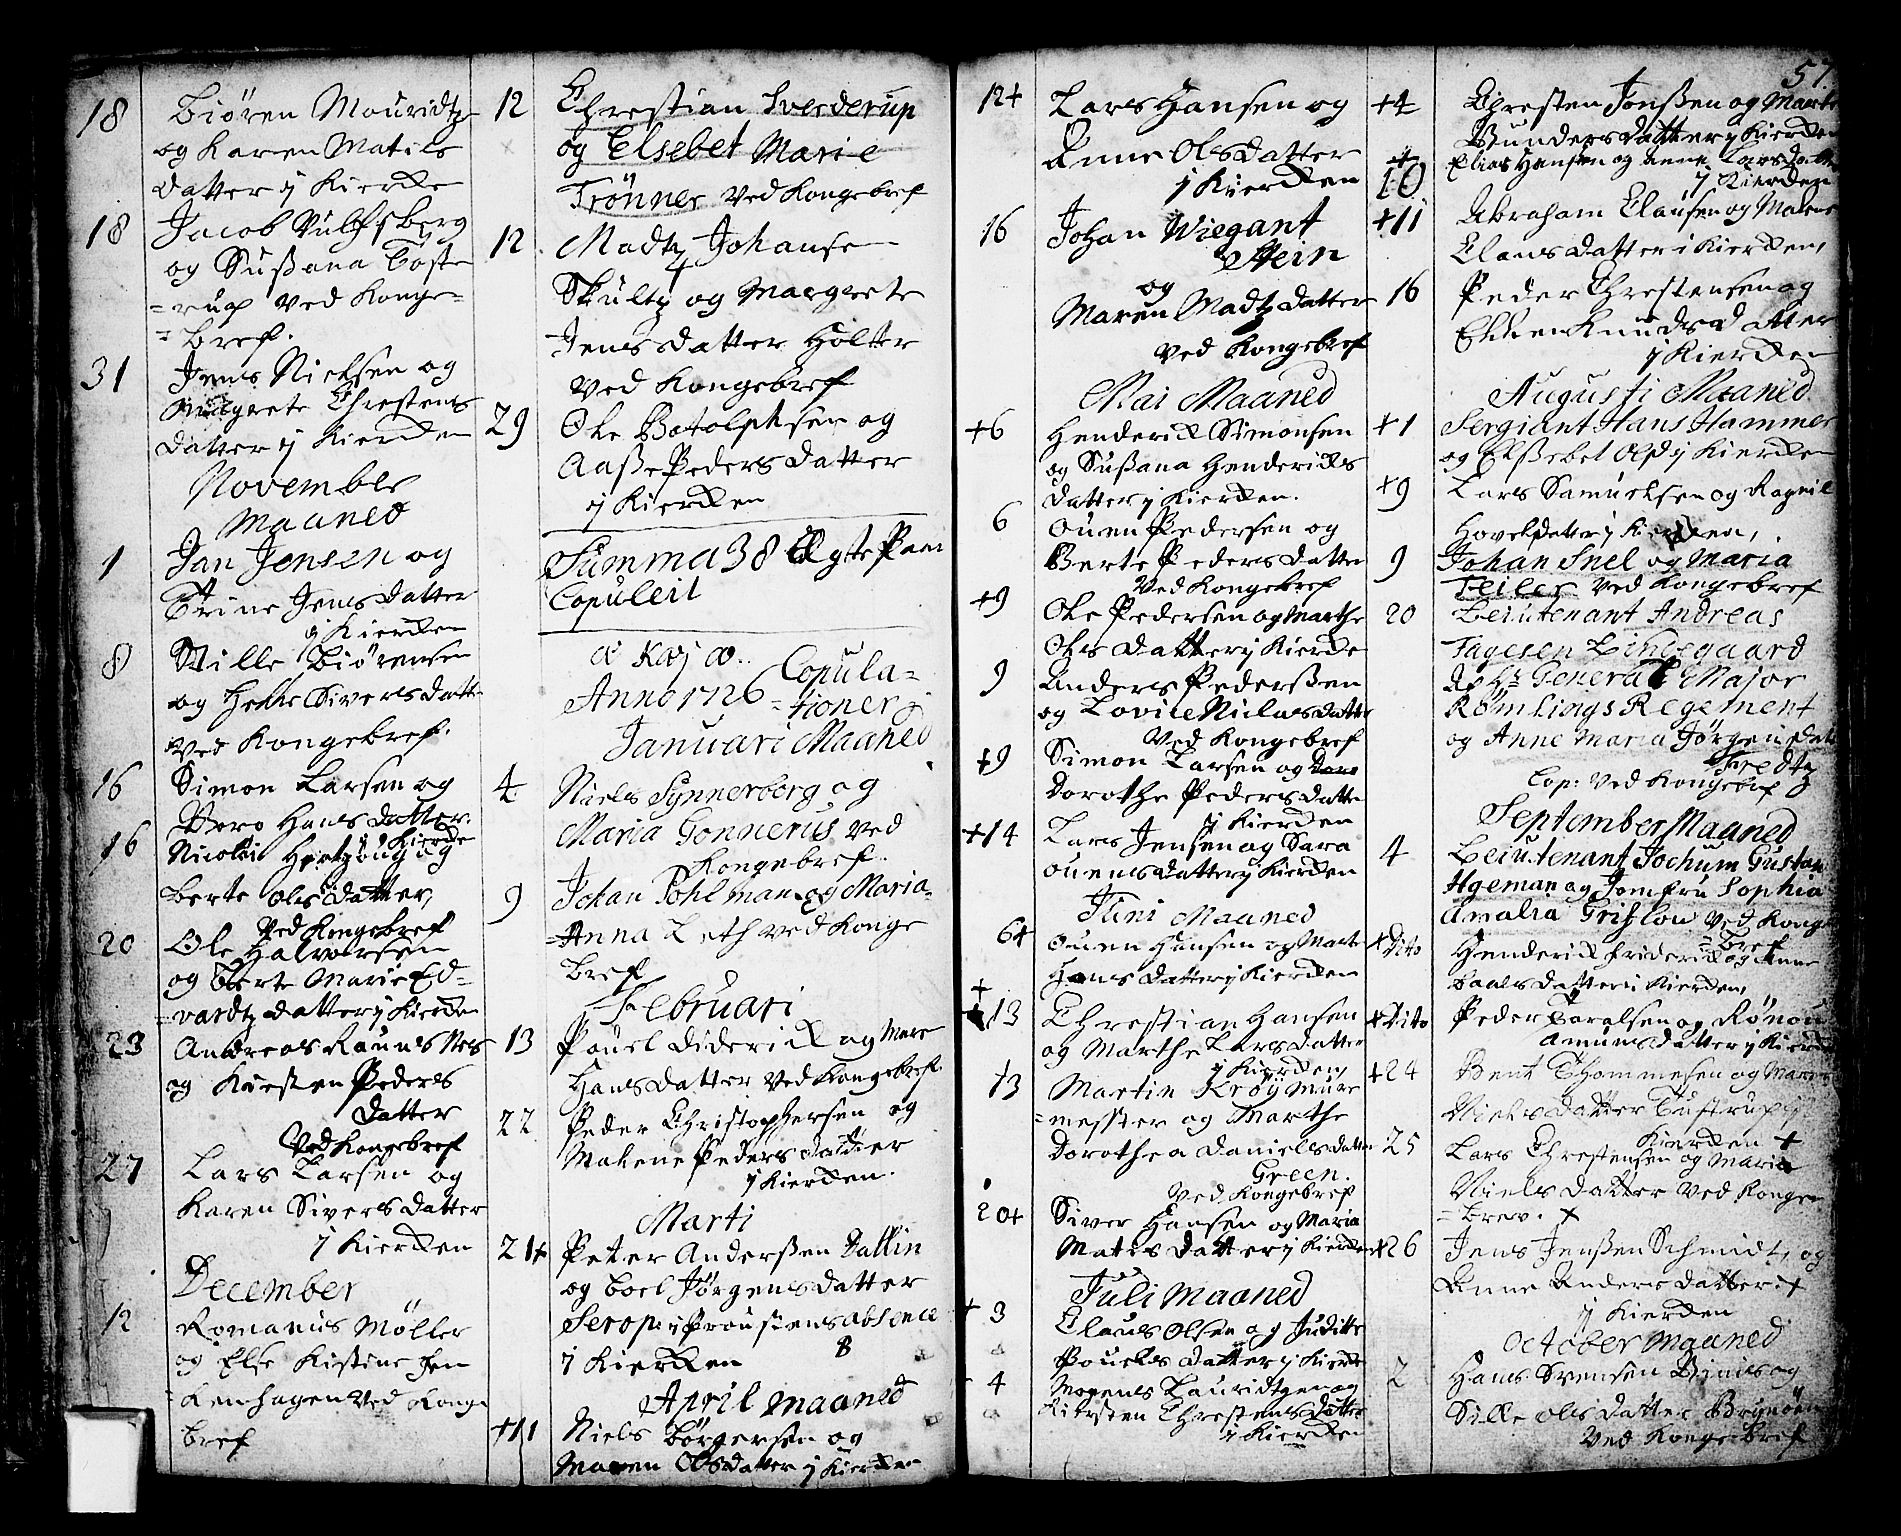 18 Biören Mouridtz
og Karen Matis
datter j Kiercke
18 Jacob Vulfsberg
og Sussana Toste
=rup ved Konge=
=bref.
31 Jens Nielsen og
Margrete Chrestens
datter j Kiercken
November
Maaned
1 Jan Jensen og
Trine Jens datter
j Kiercken
8 Stille Biörensen
og Helle Sivers datter
Ved Kongebref.
16 Simon Larsen og
Boro Hans datter
j Kiercke
16 Nicolai Hertzoug og
Berte Ols datter,
Ved Kongebref
20 Ole Halvorsen
og Berte Marie Ed=
=vardtz datter j Kiercken
23 Andreas Rauns Nes
og Kirsten Peders
datter
Ved Kongebref
27 Lars Larsen og
Karen Sivers datter
j Kiercken
December
12 Romanus Möller
og Else Kistine Hen
=kenhagen Ved Konge
bref
12 Chrestian Sverderup
og Elsebet Marie
Trönner Ved Kongebref
12 Madtz Johansen
Skultz og Margrete
Jens datter Holter
Ved Kongebref
29 Ole Botolphsen og
Aasse Peders datter
j Kiercken
Summa 38 Ægte Paar
Copuleit
Anno 1726 Copula=
=tioner
Januari Maaned
4 Niels Synnerborg og
Maria Gonnerus Ved
Kongebref.
9 Johan Pohlman og Maria
=Anna Leth ved Konge
bref
Februari
13 Pouel Diderick og Mare
Hans datter Ved Kongebref.
22 Peder Christophersen og
Malene Peders datter
j Kiercken.
Marti
21+ Peter Anderssen Dallin
og Boel Jörgens datter
Serop: i Proustens absence
j Kiercken 8
April Maaned
+11 Niels Börgersen og
Maren Ols datter j Kiercken
12+ Lars Hansen og
Anne Ols datter
j Kiercken
16 Johan Wiegant
Stein
og
Maren Madtz datter
Ved Kongebref
Mai Maaned
+6 Henderick Simonsen
og Sussana Hendericks
datter j Kiercken.
6 Ouen Pedersen og
Berte Peders datter
Ved Kongebref
+9 Ole Pedersen og Marthe
Ols datter j Kiercke
9 Anders Pederssen
og Lovice Niclas datter
Ved Kongebref
+9 Simon Larsen og
Dorothe Peders datter
j Kiercken
+14 Lars Jensen og Sara
Ouens datter j Kiercken
Juni Maaned
6+ Ouen Hansen og Marte
Hans datter j Kiercken
+
+13 Chrestian Hansen
og Marthe Lars datter
j Kiercken
13 Martin Kröy Mure
=mester og Marthe
Dorothea Daniels datter
Green.
Ved Kongebref
20+ Siver Hansen og Maria
Matis datter j Kiercken
Juli Maaned
+3 Claus Olsen og Juditte
Pouels datter j Kiercke
4 Mogens Lauridtzen og
Kiersten Chrestens datter
j Kiercken
57.
+4 Chresten Jonssen og Marte
Gunders datter j Kiercken
+10 Elias Hansen og Anne Lars datter
j Kiercken
+11 Abraham Clausen og Malene
Claus datter i Kiercken,
16 Peder Chrestensen og
Ellen Knuds datter
j Kiercken
Augusti Maaned
+1 Sergiant Hans Hammer
og Elssebet Olsd j Kiercken
+9 Lars Samuelsen og Ragnil
Hovels datter j Kiercken,
9 Johan Snel og Maria
Feiler Ved Kongebref
20 Leiutenant Andreas
Tagesen Lindegaard
af Hr General Major
Römlings Regement
og Anne Maria Jörgens dat
Fredtz
Cop: Ved Kongebref
September Maaned
4 Leiutenant Jochum Gustav
Hgeman og Jomfru Sophia
Amalia Grislou Ved Konge
=bref
+Dito Henderick Friderick og Anne
Paals datter i Kiercken,
+Dito Peder Taralsen og Rönou
Amuns datter j Kiercken
+24 Bent Thommesen og Maren
Niels datter Tustrup j
Kiercken +
25 Lars Chrestensen og Maria
Niels datter Ved Konge
=brev. +
+26 Jens Jenssen Schmidt, og
Anne Anders datter +
j Kiercken
October Maaned
2 Hans Svensen og
Sille Ols datter
Ved Kongebref